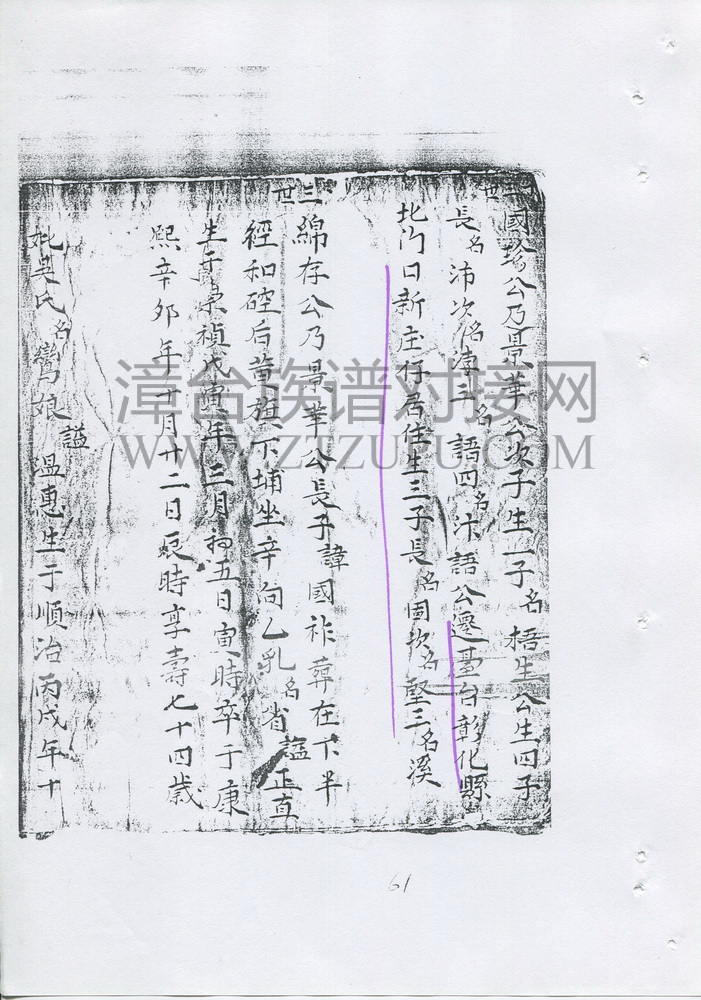 三世
國珍公乃景華公次子生一子名梧生公生四子
長名沛次名 三名語四名汴語公遷臺台彰化縣
北门口新庄仔居住生三子長名固次名堅三名溪
三世
綿存公乃景華公長子諱國祚葬在下半
經和硿后黄旗下埔坐辛向乙乳名省謚正直
生于崇禎戊寅年三月初五日寅時卒于康
熙辛卯年十月廿二日辰時享壽七十四歲
妣吳氏名鸞娘謚温惠生于順治丙戌年十
漳台族谱对接网
WWW.ZTZUPU.COM
61